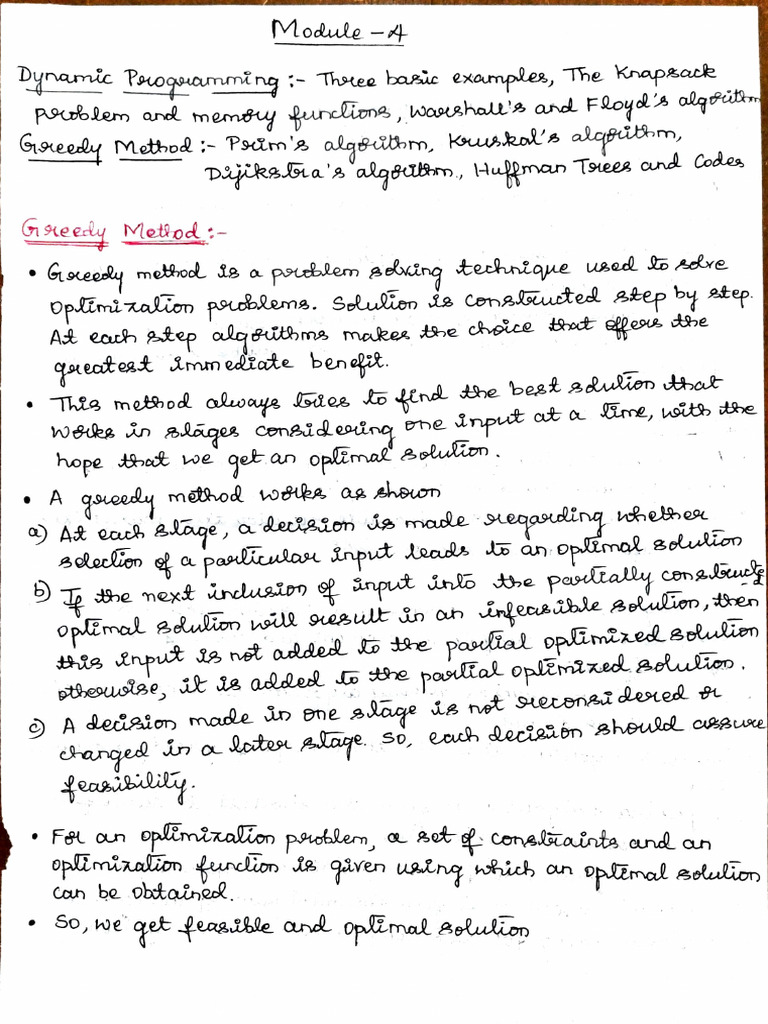 Module - 4
Dynamic Programming :- Three basic examples, The Knapsack
problem and memory functions, Warshall's and Floyd's algorithm
Greedy Method :- Prim's algorithm, Kruskal's algorithm,
Dijikstra's algorithm, Huffman Trees and Codes
Greedy Method :-
• Greedy method is a problem solving technique used to solve
optimization problems. Solution is constructed step by step.
At each step algorithms makes the choice that offers the
greatest immediate benefit.
• This method always tries to find the best solution that
works in stages considering one input at a time, with the
hope that we get an optimal solution.
• A greedy method works as shown
a) At each stage, a decision is made regarding whether
selection of a particular input leads to an optimal solution
b) If the next inclusion of input into the partially constructed
optimal solution will result in an infeasible solution, then
this input is not added to the partial optimized solution
otherwise, it is added to the partial optimized solution.
c) A decision made in one stage is not reconsidered or
changed in a later stage. So, each decision should assure
feasibility.
• For an optimization problem, a set of constraints and an
optimization function is given using which an optimal solution
can be obtained.
• So, we get feasible and optimal solution